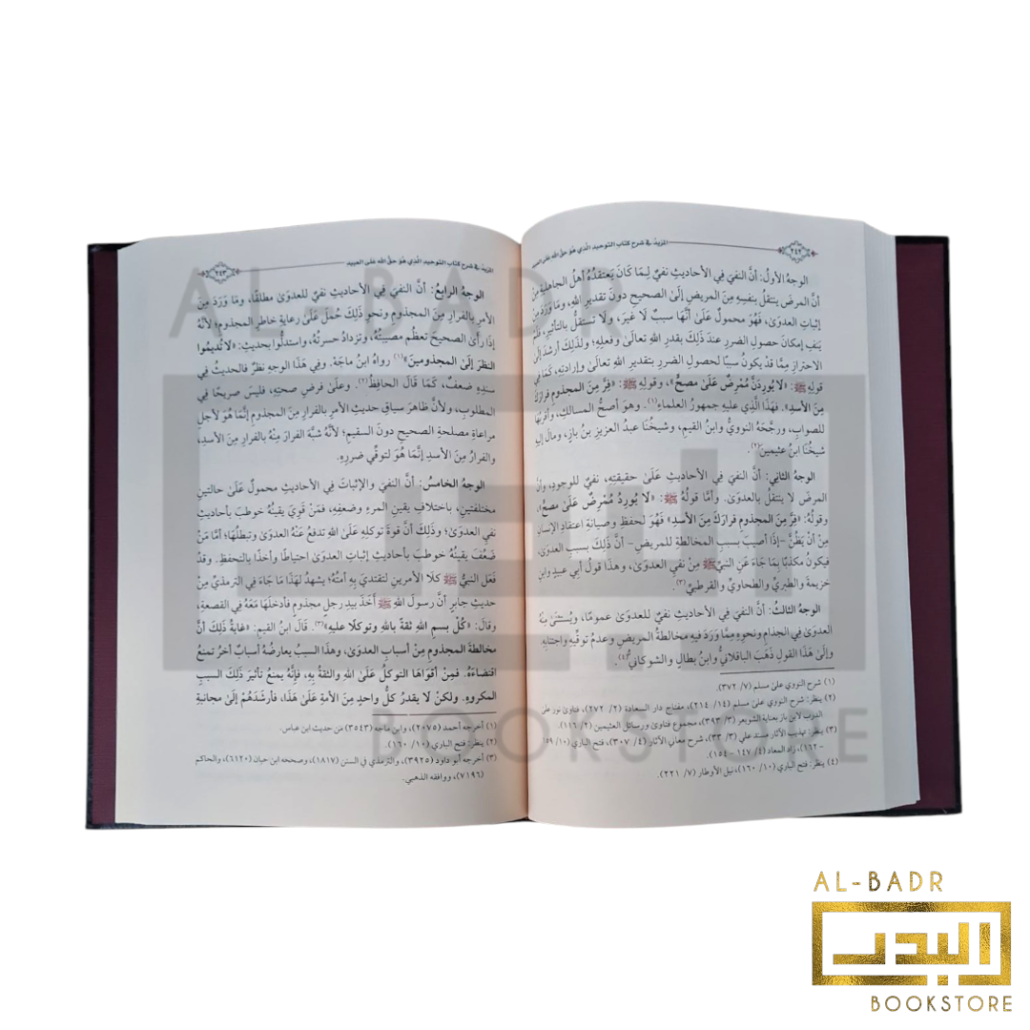 المزيد في شرح كتاب التوحيد الذي هو حق الله على العبيد
الوجهُ الأولُ: أنَّ النفيَ فِي الأحاديثِ نفيٌ لِـمَا كَانَ يَعتقدُهُ أهلُ الجاهليةِ مِنْ
أنَّ المرضَ ينتقلُ بنفسِهِ مِنَ المريضِ إلَىٰ الصحيحِ دونَ تقديرِ اللهِ، ومَا وَرَدَ مِنْ
إثباتِ العدوَىٰ، فَهُوَ محمولٌ عَلَىٰ أنَّهَا سببٌ لَا غيرَ، وَلَا تستقلُّ بالتأثيرِ، فلَمْ
يَنفِ إمكانَ حصولِ الضررِ عندَ ذَلِكَ بقدرِ اللهِ تعالَىٰ وفعلِهِ؛ ولذَلِكَ أرشدَ إلَىٰ
الاحترازِ مِمَّا قَدْ يكونُ سببًا لحصولِ الضررِ بتقديرِ اللهِ تعالَىٰ وإرادتِهِ، كَمَا فِي
قولِهِ ﷺ: «لا يُورِدَنَّ مُمْرِضٌ عَلَىٰ مصحٍّ»، وقولِهِ ﷺ: «فِرَّ مِنَ المجذومِ فرارَكَ
مِنَ الأسدِ». فهَذَا الَّذِي عليهِ جمهورُ العلماءِ(١). وهوَ أصحُّ المسالكِ، وأقربُهَا
للصوابِ، ورجَّحَهُ النوويُّ وابنُ القيمِ، وشيخُنَا عبدُ العزيزِ بنُ بازٍ، ومالَ إليهِ
شيخُنَا ابنُ عثيمينَ(٢).
الوجهُ الثاني: أنَّ النفيَ فِي الأحاديثِ عَلَىٰ حقيقتِهِ، نفيٌ للوجودِ، وأنَّ
المرضَ لَا ينتقلُ بالعدوَىٰ. وأمَّا قولُهُ ﷺ: «لَا يُورِدُ مُمْرِضٌ عَلَىٰ مصحٍّ»،
وقولُهُ: «فِرَّ مِنَ المجذومِ فرارَكَ مِنَ الأسدِ» فَهُوَ لحفظِ وصيانةِ اعتقادِ الإنسانِ
مِنْ أنْ يَظُنَّ -إذَا أصيبَ بسببِ المخالطةِ للمريضِ- أنَّ ذَلِكَ بسببِ العدوَىٰ،
فيكونُ مكذبًا بِمَا جَاءَ عَنِ النبيِّ ﷺ مِنْ نفيِ العدوَىٰ، وهذَا قولُ أبِي عبيدٍ وابنِ
خزيمةَ والطبريِّ والطحاويِّ والقرطبيِّ(٣).
الوجهُ الثالثُ: أنَّ النفيَ فِي الأحاديثِ نفيٌ للعدوَىٰ عمومًا، ويُستثنَىٰ مِنهُ
العدوَىٰ فِي الجذامِ ونحوِهِ مِمَّا وَرَدَ فِيهِ مخالطةُ المريضِ وعدمُ توقِّيهِ واجتنابِهِ
وإلَىٰ هَذَا القولِ ذَهَبَ الباقلانيُّ وابنُ بطالٍ والشوكانيُّ(٤).
(١) شرح النووي علىٰ مسلم (٧/ ٣٧٢).
(٢) ينظر: شرح النووي علىٰ مسلم (١٤/ ٢١٤)، مفتاح دار السعادة (٢/ ٢٧٢)، فتاوىٰ نور علىٰ
الدرب لابن باز بعناية الشويعر (٣/ ٣٩٣)، مجموع فتاوىٰ ورسائل العثيمين (٢/ ١١٦).
(٣) ينظر: تهذيب الآثار مسند علي (٣/ ٣٣)، شرح معاني الآثار (٤/ ٣٠٧)، فتح الباري (١٠/ ١٥٩
-١٦٢)، زاد المعاد (٤/ ١٤٧- ١٥٤).
(٤) ينظر: فتح الباري (١٠/ ١٦٠)، نيل الأوطار (٧/ ٢٢١).
المزيد في شرح كتاب التوحيد الذي هو حق الله على العبيد
٢٤٣
الوجهُ الرابعُ: أنَّ النفيَ فِي الأحاديثِ نَفيٌ للعدوَىٰ مطلقًا، ومَا وَرَدَ مِنَ
الأمرِ بالفرارِ مِنَ المجذومِ ونحوِ ذَلِكَ حُملَ عَلَىٰ رعايةِ خاطرِ المجذومِ؛ لأنَّهُ
إذَا رأَىٰ الصحيحَ تعظُمُ مصيبتُهُ، وتزدادُ حسرتُهُ، واستدلُّوا بحديثِ: «لَا تُديمُوا
النظرَ إلَىٰ المجذومينَ»(١) رواهُ ابنُ ماجَهْ. وفِي هَذَا الوجهِ نظرٌ فالحديثُ فِي
سندِهِ ضعفٌ، كَمَا قَالَ الحافظُ(٢). وعلَىٰ فرضِ صحتِهِ، فليسَ صريحًا فِي
المطلوبِ، ولأنَّ ظاهرَ سياقِ حديثِ الأمرِ بالفرارِ مِنَ المجذومِ إنَّمَا هُوَ لأجلِ
مراعاةِ مصلحةِ الصحيحِ دونَ السقيمِ؛ لأنَّهُ شبَّهَ الفرارَ مِنْهُ بالفرارِ مِنَ الأسدِ،
والفرارُ مِنَ الأسدِ إنَّمَا هُوَ لتوقِّي ضررِهِ.
الوجهُ الخامسُ: أنَّ النفيَ والإثباتَ فِي الأحاديثِ محمولٌ عَلَىٰ حالتينِ
مختلفتينِ، باختلافِ يقينِ المرءِ وضعفِهِ، فمَنْ قَوِيَ يقينُهُ خوطبَ بأحاديثِ
نفيِ العدوَىٰ؛ وذَلِكَ أنَّ قوةَ توكلِهِ عَلَىٰ اللهِ تدفعُ عَنْهُ العدوَىٰ وتبطلُهَا؛ أمَّا مَنْ
ضَعُفَ يقينُهُ خوطبَ بأحاديثِ إثباتِ العدوَىٰ احتياطًا وأخذًا بالتحفظِ. وقدْ
فَعَلَ النبيُّ ﷺ كلَا الأمرينِ لتقتديَ بِهِ أمتُهُ؛ يشهدُ لهَذَا مَا جَاءَ فِي الترمذيِّ مِنْ
حديثِ جابرٍ أنَّ رسولَ اللهِ ﷺ أَخَذَ بيدِ رجلٍ مجذومٍ فأدخلَهَا مَعَهُ فِي القصعةِ،
وقالَ: «كُلْ بسمِ اللهِ ثقةً باللهِ وتوكلًا عليهِ»(٣). قَالَ ابنُ القيمِ: «غايةُ ذَلِكَ أنَّ
مخالطةَ المجذومِ مِنْ أسبابِ العدوَىٰ، وهذَا السببُ يعارضُهُ أسبابٌ أخرُ تمنعُ
اقتضاءَهُ. فمِنْ أقوَاهَا التوكلُ عَلَىٰ اللهِ والثقةُ بِهِ، فإنَّهُ يمنعُ تأثيرَ ذَلِكَ السببِ
المكروهِ. ولكنْ لَا يقدرُ كلُّ واحدٍ مِنَ الأمةِ عَلَىٰ هَذَا، فأرشدَهُمْ إلَىٰ مجانبةِ
(١) أخرجه أحمد (٢٠٧٥)، وابن ماجه (٣٥٤٣) من حديث ابن عباس.
(٢) ينظر: فتح الباري (١٠/ ١٦٠).
(٣) أخرجه أبو داود (٣٩٢٥)، والترمذي في السنن (١٨١٧)، وصححه ابن حبان (٦١٢٠)، والحاكم
(٧١٩٦)، ووافقه الذهبي.
AL-BADR
BOOKSTORE
AL-BADR
البدر
BOOKSTORE